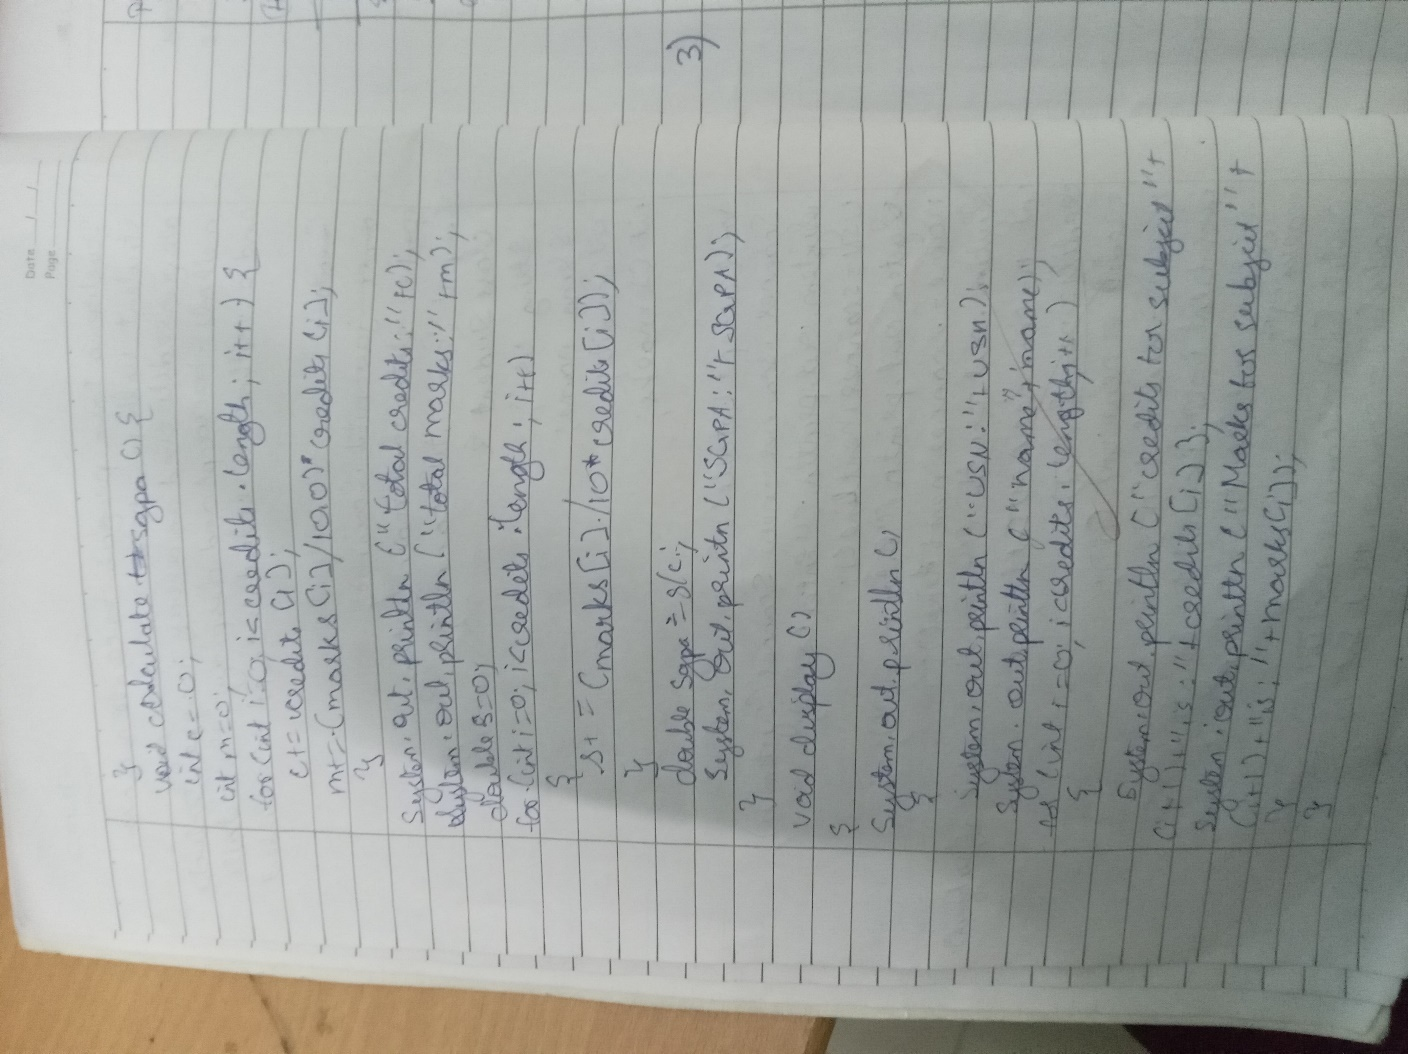 Date / /
Page
}
void calculate sgpa () {
int c=0;
int m=0;
for (int i=0; i<credits.length; i++) {
c+=credits [i];
m+=(marks[i]/100)*credits[i];
}
System.out.println ("total credits:"+c);
System.out.println ("total marks:"+m);
double s=0;
for (int i=0; i<credits.length; i++)
{
s+=(marks[i]/10*credits[i]);
}
double sgpa=s/c;
System.out.println ("SGPA:"+SGPA);
}
void display ()
{
System.out.println ()
{
System.out.println ("USN:"+usn);
System.out.println ("name"+name);
for (int i=0; i<credits.length; i++)
{
System.out.println ("credits for subject"+
(i+1)+"is:"+credits[i]);
System.out.println ("Marks for subject"+
(i+1)+"is:"+marks[i]);
}
}
3)